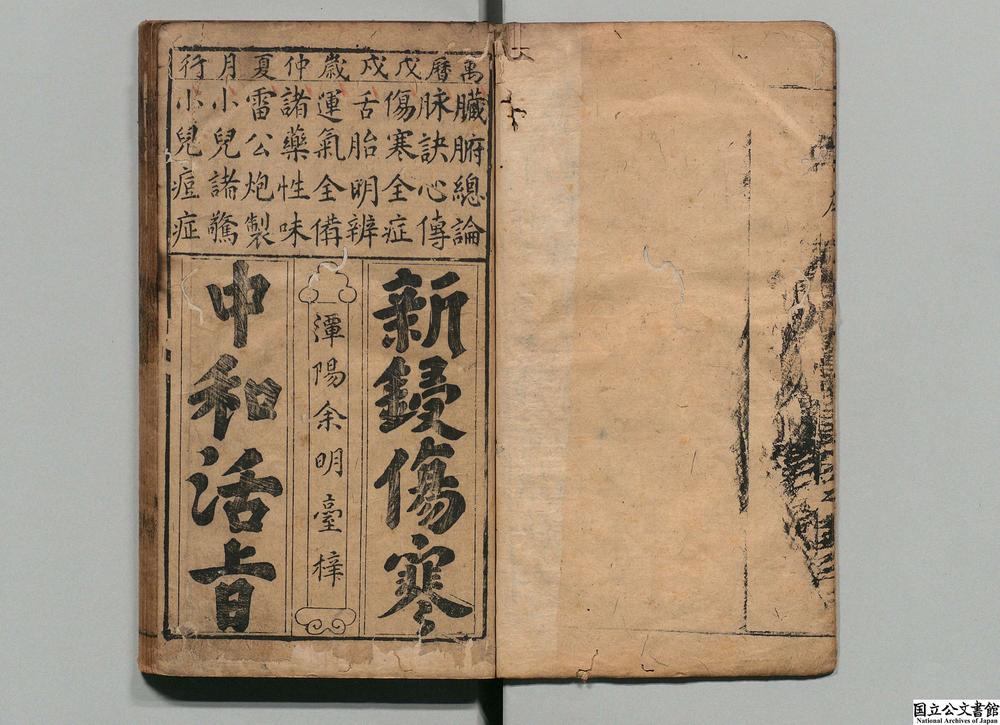 萬曆戊戌歲仲夏月行
臟腑總論
脉訣心傳
傷寒全症
舌胎明辨
運氣全備
諸藥性味
雷公炮製
小兒諸驚
小兒痘症
新鋟傷寒
潭陽余明臺梓
中和活㫖
国立公文書館
National Archives of Japan